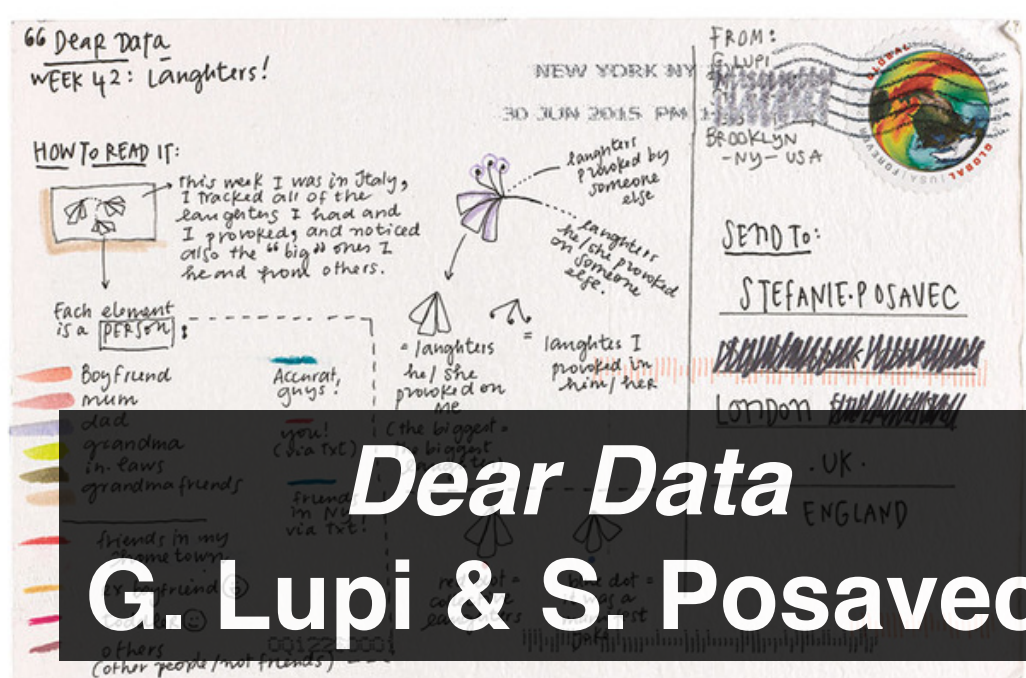 “ Dear Data
WEEK 42: Laughters!
HOW TO READ IT:
This week I was in Italy,
I tracked all of the
laughters I had and
I provoked, and noticed
also the “big” ones I
heard from others.
Each element
is a PERSON:
Boyfriend
mum
dad
grandma
in-laws
grandma friends
friends in my
home town
ex boyfriend
toddler
others
(other people/not friends)
Accurat
guys!
you!
(via TxT)
friends
in NY
via TxT!
laughters
provoked by
someone
else
laughters
he/she provoked
on someone
else.
= laughters
he/she
provoked on
me
(the biggest =
the biggest
= laughters I
provoked in
him/her
red dot =
blue dot =
it was a
NEW YORK NY
30 JUN 2015 PM 1
FROM:
G. LUPI
BROOKLYN
-NY- USA
GLOBAL
GLOBAL | USA | FOREVER
SEND TO:
STEFANIE·POSAVEC
LONDON
·UK·
ENGLAND
Dear Data
G. Lupi & S. Posavec